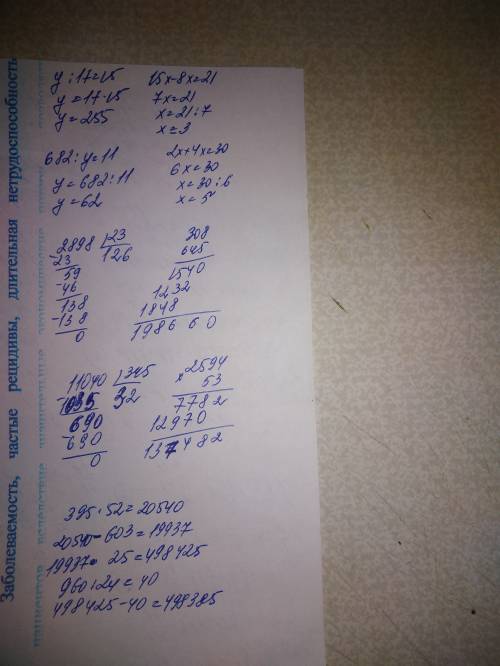 y : 17 = 15
y = 17 · 15
y = 255
15x - 8x = 21
7x = 21
x = 21 : 7
x = 3
682 : y = 11
y = 682 : 11
y = 62
2x + 4x = 30
6x = 30
x = 30 : 6
x = 5
2898 23
-23 126
59
-46
138
-138
0
308
645
1540
1232
1848
198660
11040 345
-1035 32
690
-690
0
2594
x 53
7782
12970
137482
395 · 52 = 20540
20540 - 603 = 19937
19937 · 25 = 498425
960 : 24 = 40
498425 - 40 = 498385
Заболеваемость, частые рецидивы, длительная нетрудоспособность